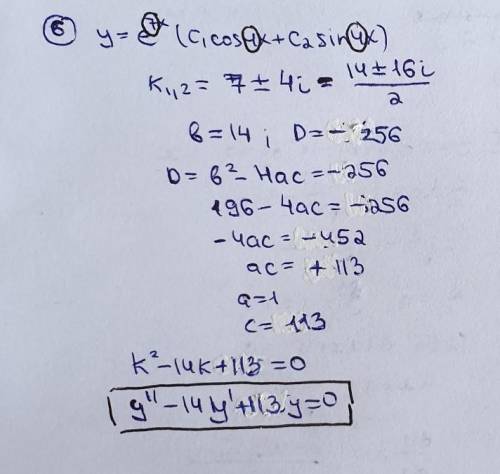 ⑥ y = e^7x (C₁cos4x + C₂sin4x)
K₁,₂ = 7 ± 4i = (14 ± 16i)/2
b = 14; D = -256
D = b² - 4ac = -256
196 - 4ac = -256
-4ac = -452
ac = +113
a = 1
c = 113
k² - 14k + 113 = 0
y'' - 14y' + 113y = 0